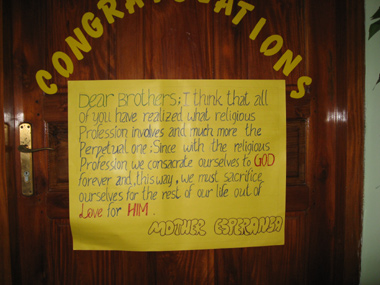 CONGRATULATIONS
Dear Brothers; I think that all
of you have realized what religious
Profession involves and much more the
Perpetual one: Since with the religious
Profession we consacrate ourselves to GOD
forever and, this way, we must sacrifice
ourselves for the rest of our life out of
Love for HIM.
MOTHER ESPERANSA